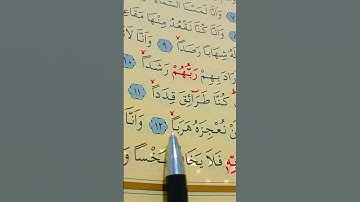 وَأَنَّا لَمَسْنَا السَّمَاءَ
وَأَنَّا كُنَّا نَقْعُدُ مِنْهَا مَقَاعِدَ
لَهُ شِهَابًا رَصَدًا ۝٩ وَأَنَّا لَا
رَادَ بِهِمْ رَبُّهُمْ رَشَدًا ۝١٠
كُنَّا طَرَائِقَ قِدَدًا ۝١١
نْ نُعْجِزَهُ هَرَبًا ۝١٢ وَأَنَّا
بِّهِ فَلَا يَخَافُ بَخْسًا وَ